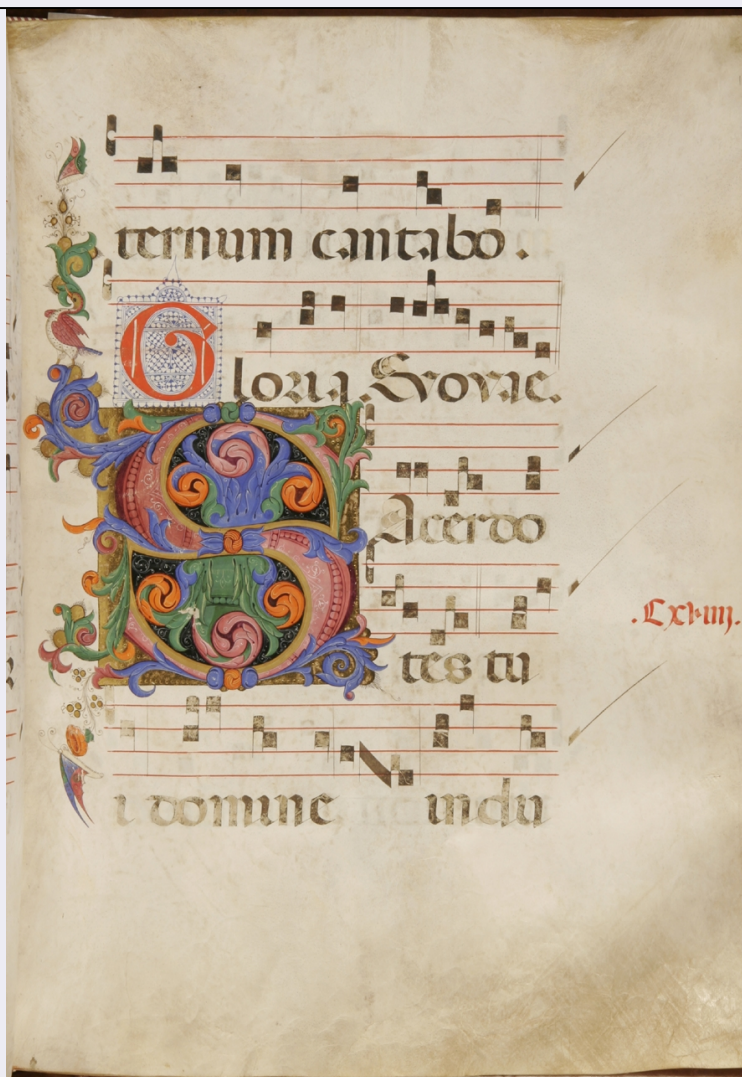 ternum cantabo.
Gloria. Evovae.
SAcerdo
tes tu
i domine indu
.Cxviiij.